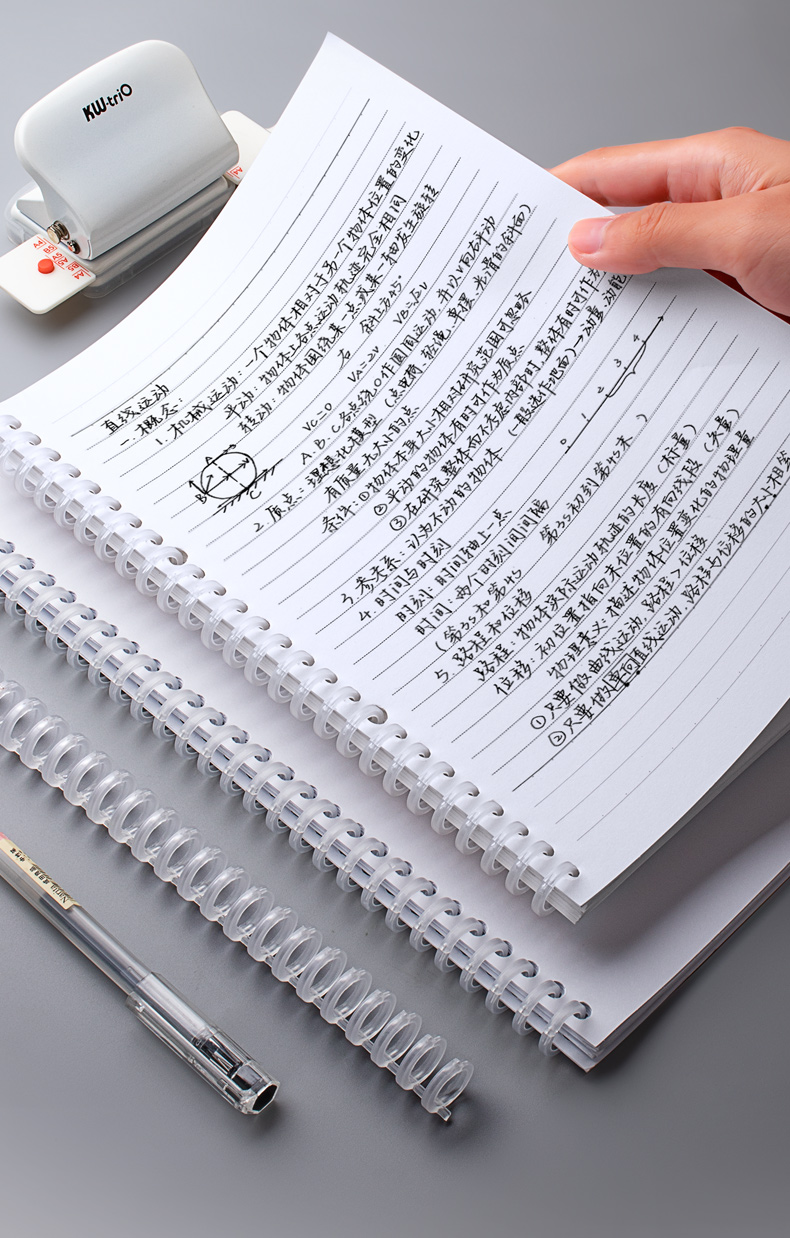 KW-triO
直线运动
一. 概念:
1. 机械运动: 一个物体相对于另一个物体位置的变化
平动: 物体上各点运动轨迹完全相同
转动: 物体围绕某一点或某一轴发生旋转
右 斜上方45°
VC=0 VA=2V VB=√2V
A. B. C各点绕O作圆周运动, 并以V向右平动
2. 质点: 理想化模型 (点电荷、轻绳、单摆、光滑的斜面)
有质量无大小的点
条件: ①物体本身大小相对研究范围可忽略
②平动的物体有时可作为质点
③在研究整体而不考虑内部时, 整体有时可作为
3. 参考系: 认为不动的物体 (一般选作地面)→动量 动能
4. 时间与时刻
时刻: 时间轴上一点
0 1 2 3 4
时间: 两个时刻间间隔
(第3s和第4s 第3s初到第4s末)
5. 路程和位移
路程: 物体实际运动轨迹的长度 (标量)
位移: 初位置指向末位置的有向线段 (矢量)
物理意义: 描述物体位置变化的物理量
①只要做曲线运动, 路程>位移
②只要做单向直线运动, 路程与位移的大小相等
A
B
C
V
A4
B5
A5